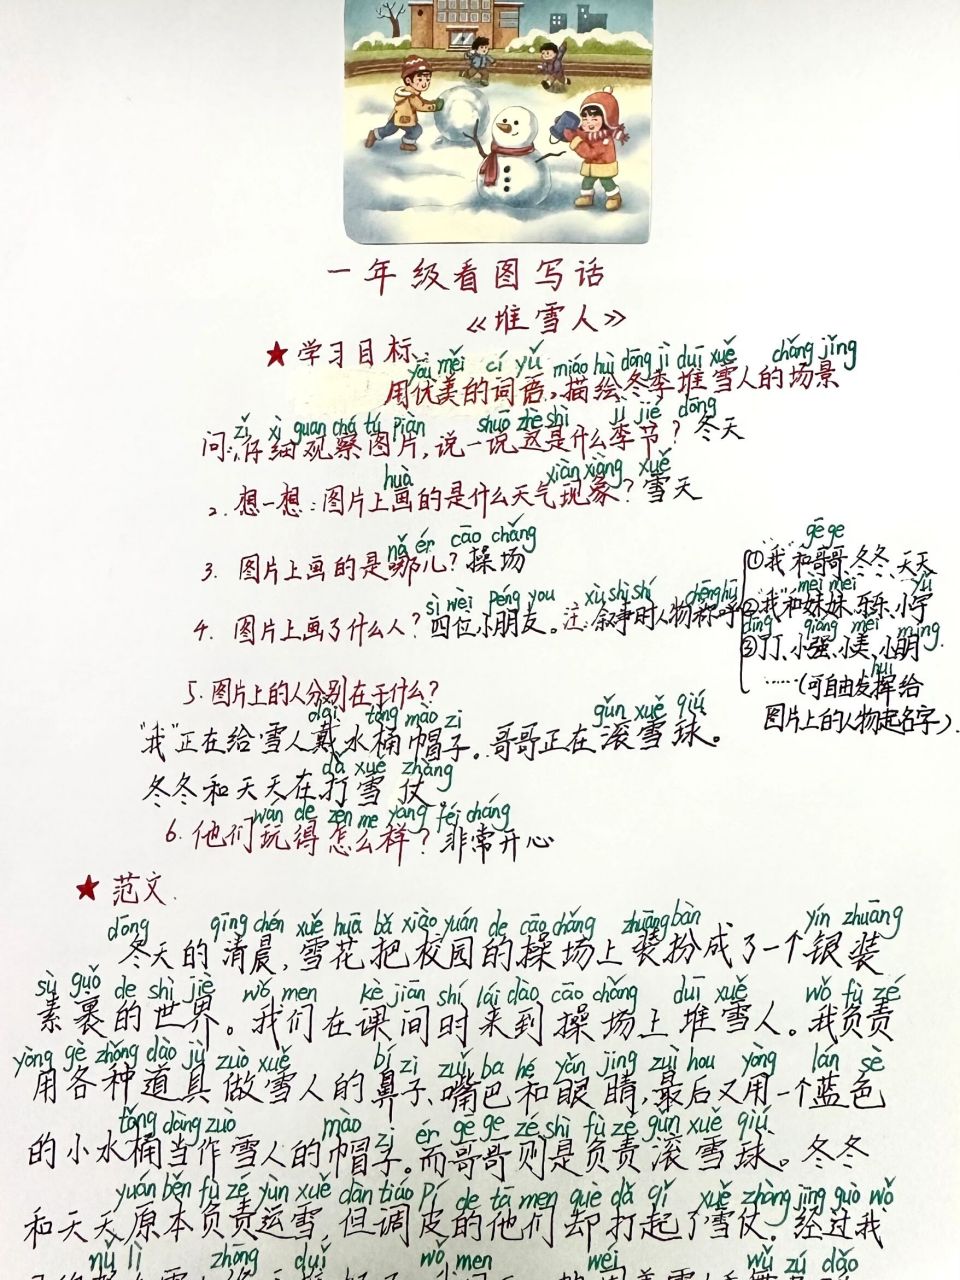 一年级看图写话
《堆雪人》
★学习目标
yōu měi cí yǔ miáo huì dōng jì duī xuě chǎng jǐng
用优美的词语,描绘冬季堆雪人的场景
zǐ xì guan chá tú piàn shuō zhè shì jì jié dōng
问:仔细观察图片,说一说这是什么季节?冬天
huà xiàn xiàng xuě
2.想一想:图片上画的是什么天气现象?雪天
nǎ ér cāo chǎng
3.图片上画的是哪儿?操场
sì wèi péng you xù shì shí chēng hū
4.图片上画了什么人?四位小朋友。注:叙事时人物称呼
gē ge
①“我”和哥哥、冬冬、天天
mèi mei yǔ
②“我”和妹妹、乐乐、小宇
dīng qiáng měi míng
③丁丁、小强、小美、小明.
huī
……(可自由发挥给
图片上的人物起名字).
5.图片上的人分别在干什么?
dài tǒng mào zi gǔn xuě qiú
“我”正在给雪人戴水桶帽子。哥哥正在滚雪球。
dǎ xuě zhàng
冬冬和天天在打雪仗.
wán de zěn me yàng fēi cháng
6.他们玩得怎么样?非常开心
★范文.
dōng qīng chén xuě huā bǎ xiào yuán de cāo chǎng zhuāng bàn yín zhuāng
冬天的清晨,雪花把校园的操场上装扮成了一个银装
sù guǒ de shì jiè wǒ men kè jiān shí lái dào cāo chǎng duī xuě wǒ fù zé
素裹的世界。我们在课间时来到操场上堆雪人。我负责
yòng gè zhǒng dào jù zuò xuě bí zi zuǐ ba hé yǎn jing zuì hou yòng lán sè
用各种道具做雪人的鼻子、嘴巴和眼睛,最后又用一个蓝色
tǒng dàng zuò mào zi ér gē ge zé shì fù zé gǔn xuě qiú
的小水桶当作雪人的帽子。而哥哥则是负责滚雪球。冬冬
yuán běn fù zé yùn xuě dàn tiáo pí de tā men què dǎ qǐ xuě zhàng jīng guò wǒ
和天天原本负责运雪,但调皮的他们却打起了雪仗。经过我
nǔ lì zhōng duī wǒ men wéi wǔ zú dǎo